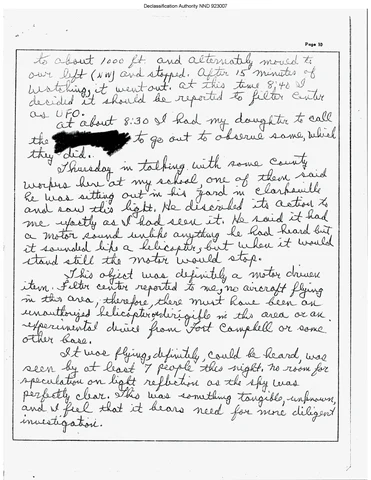 Declassification Authority NND 923007
Page 10
to about 1000 ft. and alternately moved to
our left (NW) and stopped. After 15 minutes of
watching, it went out. At this time 8:40 I
decided it should be reported to filter center
as UFO.
At about 8:30 I had my daughter to call
the to go out to observe same, which
they did.
Thursday in talking with some county
workers here at my school, one of them said
he was sitting out in his yard in Clarksville
and saw this light. He described its action to
me exactly as I had seen it. He said it had
a motor sound unlike anything he had heard but
it sounded like a helicopter, but when it would
stand still the motor would stop.
This object was definitely a motor driven
item. Filter center reported to me, no aircraft flying
in this area, therefore, there must have been an
unauthorized helicopter or dirigible in this area or an
experimental device from Fort Campbell or some
other base.
It was flying, definitely, could be heard, was
seen by at least 7 people this night, no room for
speculation on light reflection as the sky was
perfectly clear. This was something tangible, unknown,
and I feel that it bears need for more diligent
investigation.